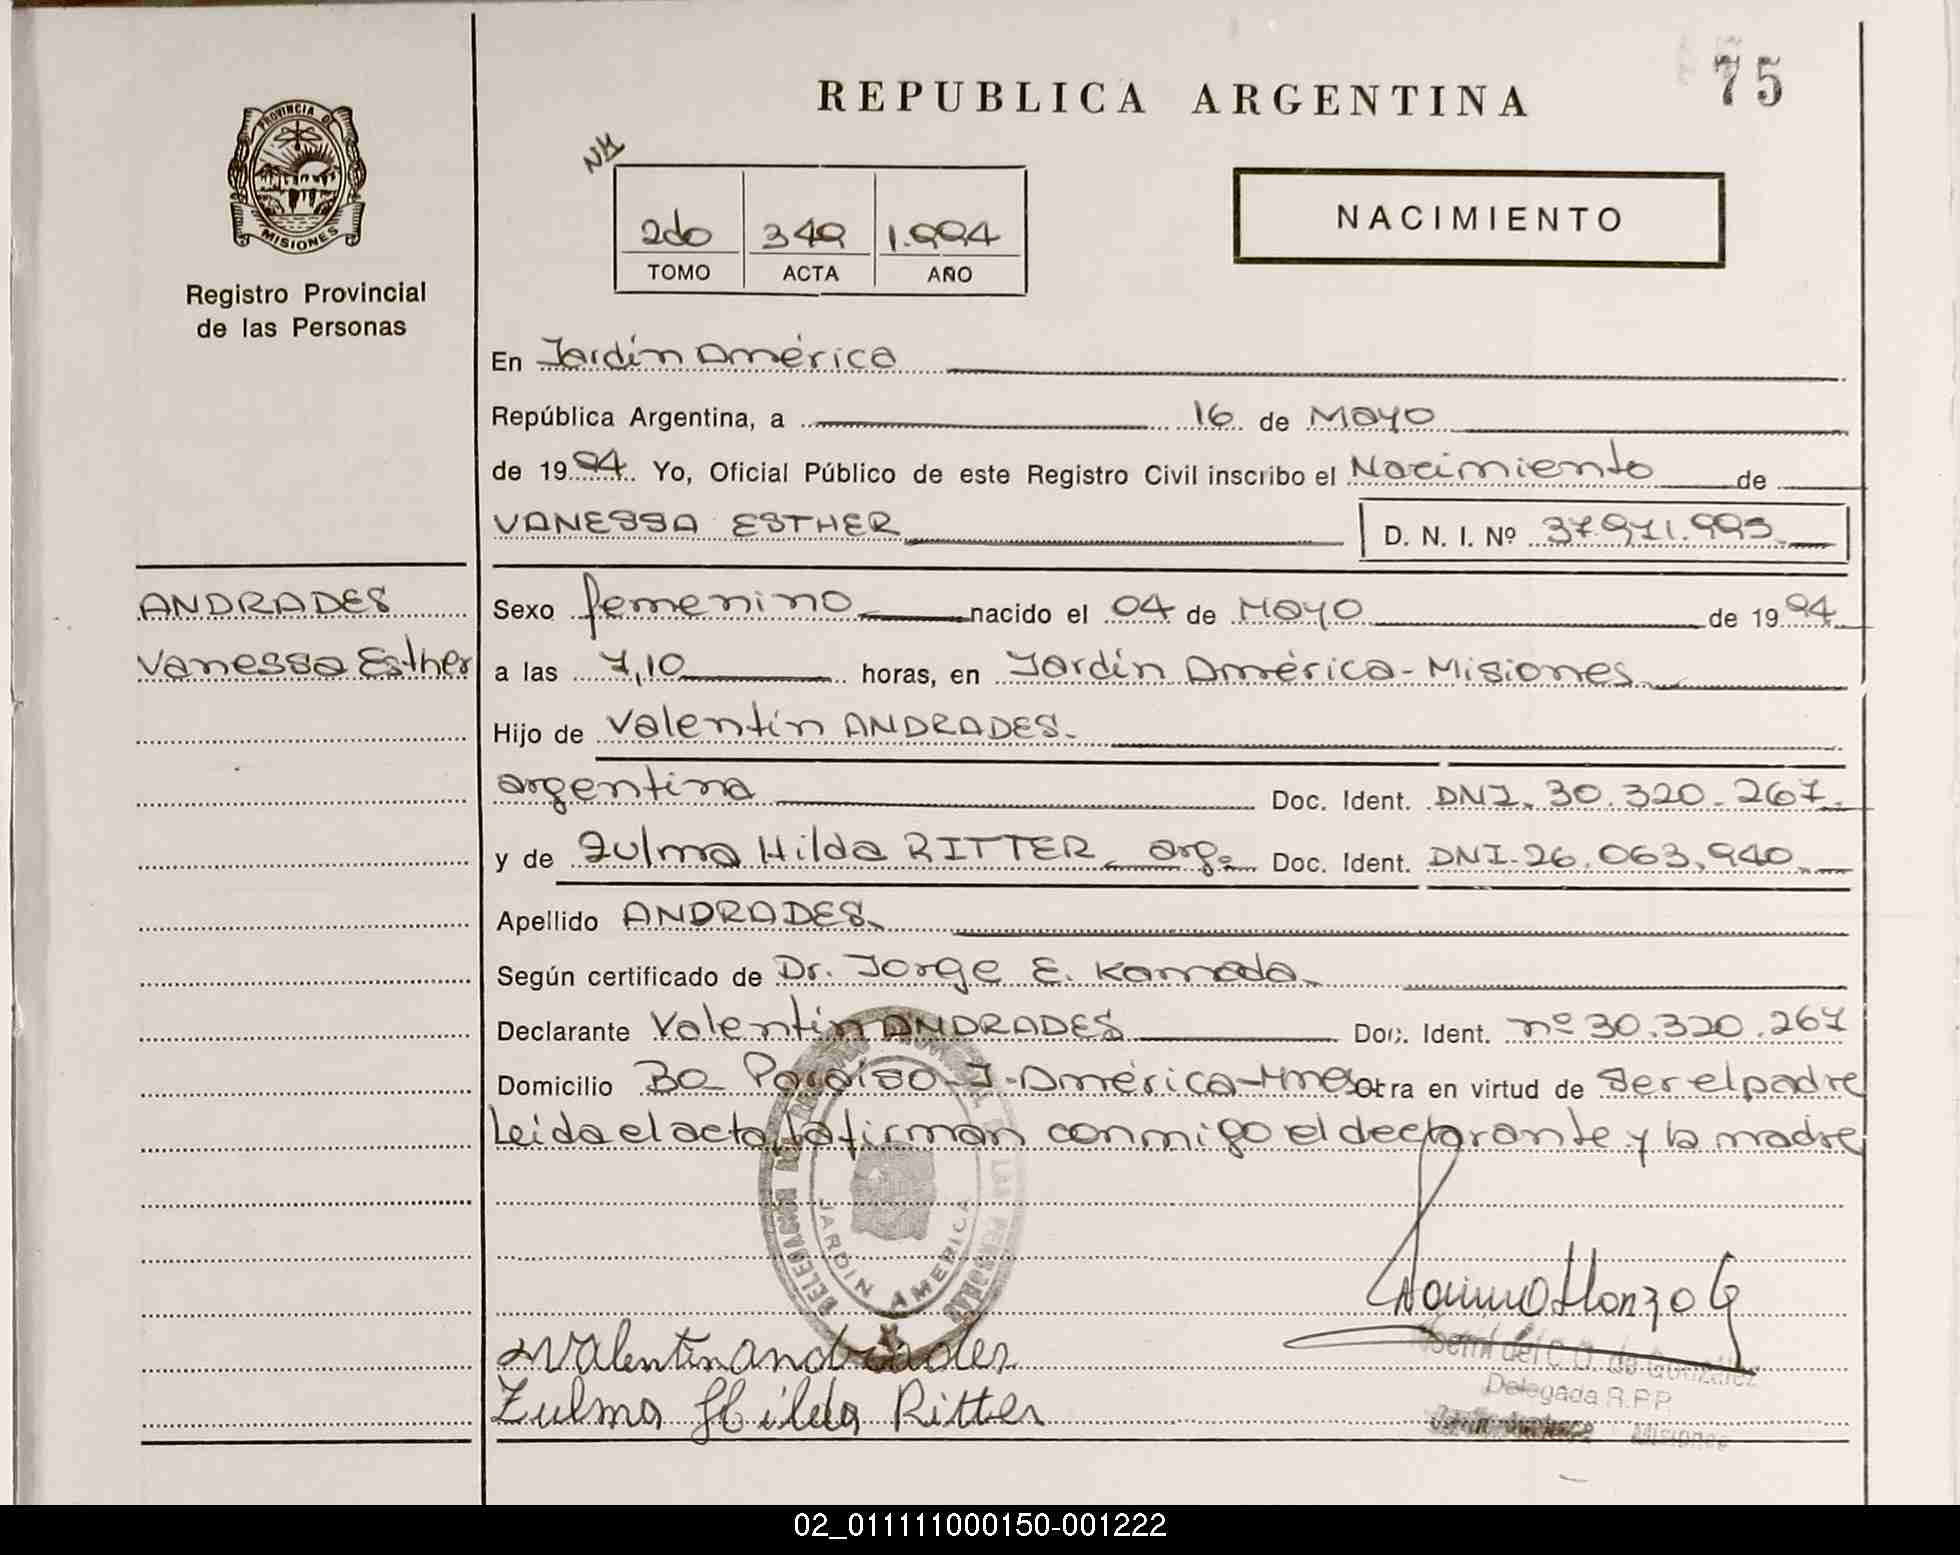 75
REPUBLICA ARGENTINA
PROVINCIA DE
MISIONES
Registro Provincial
de las Personas
NH
2do 349 1.994
TOMO ACTA AÑO
NACIMIENTO
En Jardín América
República Argentina, a 16 de Mayo
de 1994. Yo, Oficial Público de este Registro Civil inscribo el Nacimiento de
VANESSA ESTHER D. N. I. Nº 37.971.993
ANDRADES
Vanessa Esther
Sexo femenino nacido el 04 de Mayo de 1994
a las 7,10 horas, en Jardín América - Misiones
Hijo de Valentín ANDRADES.
argentina Doc. Ident. DNI. 30.320.267.
y de Zulma Hilda RITTER, arg. Doc. Ident. DNI. 26.063.940
Apellido ANDRADES
Según certificado de Dr. Jorge E. Kamada
Declarante Valentín ANDRADES Doc. Ident. nº 30.320.267
Domicilio Bo Paraíso - J. América - Mnes Obra en virtud de ser el padre
Leída el acta, la firman conmigo el declarante y la madre
JARDIN AMERICA
Valentin andrades
Zulma Hilda Ritter
Noemi del C. D. de González
Delegada R.P.P.
Misiones
02_011111000150-001222